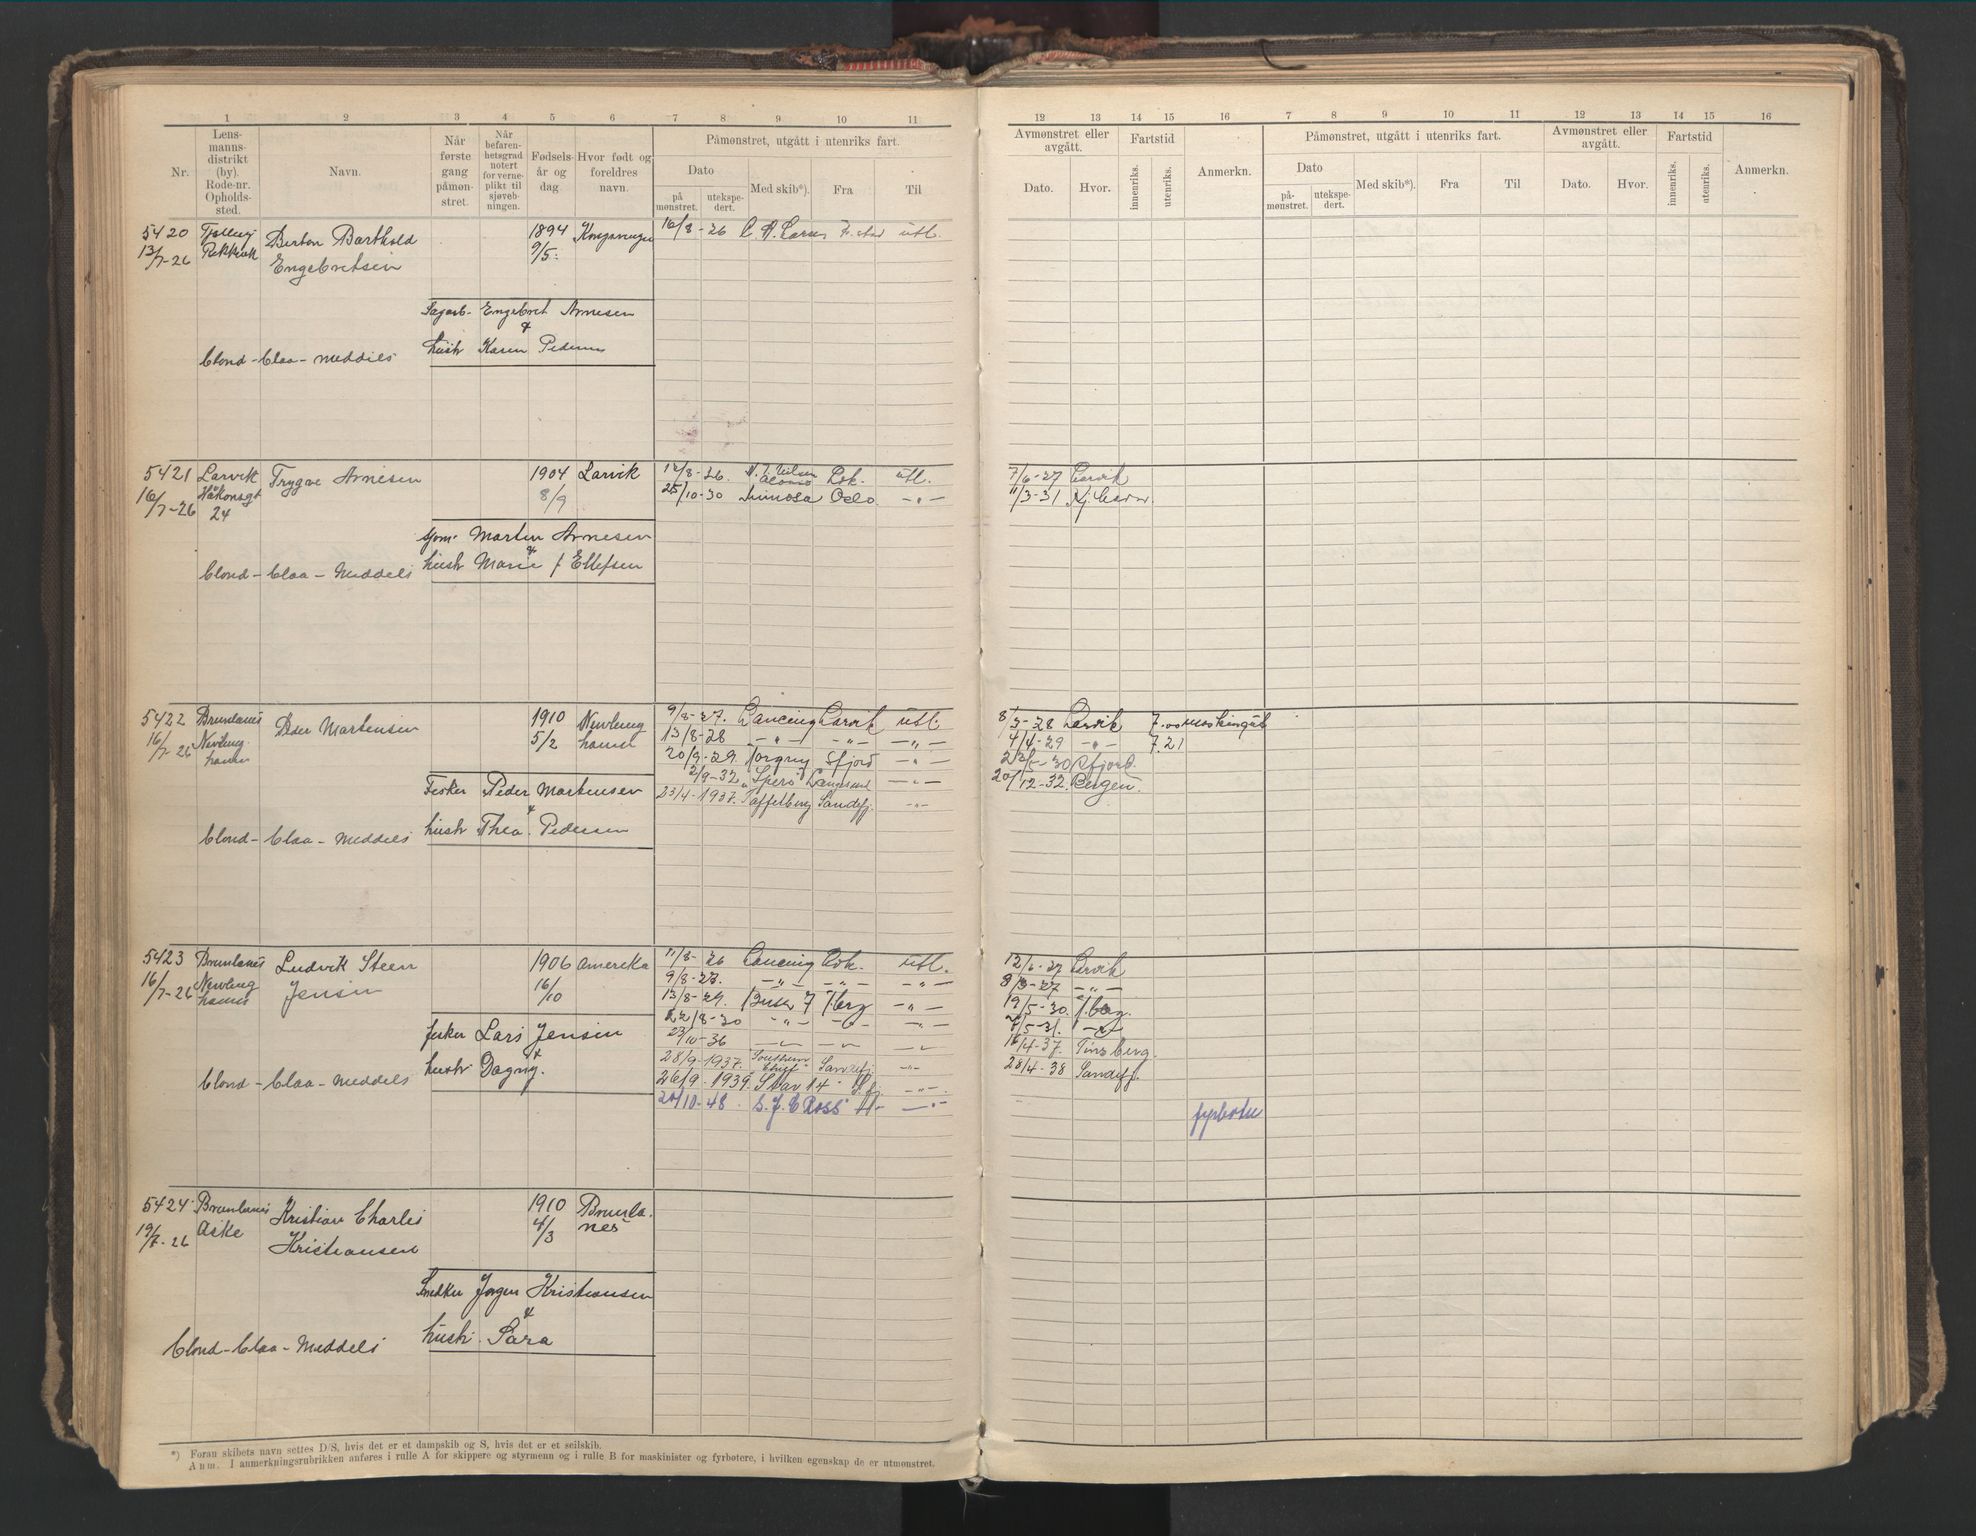 1 2 3 4 5 6 7 8 9 10 11
Nr.
Lensmannsdistrikt (by). Rode-nr. Opholdssted.
Navn.
Når første gang påmønstret.
Når befarenhetsgrad notert for verneplikt til sjøvebningen.
Fødselsår og dag.
Hvor født og foreldres navn.
Påmønstret, utgått i utenriks fart.
Dato
på mønstret. utekspedert.
Med skib*).
Fra
Til
12 13 14 15 16 7 8 9 10 11 12 13 14 15 16
Avmønstret eller avgått.
Dato. Hvor.
Fartstid
innenriks. utenriks.
Anmerkn.
Påmønstret, utgått i utenriks fart.
Dato
påmønstret. utekspedert.
Med skib*). Fra Til
Avmønstret eller avgått.
Dato. Hvor.
Fartstid
innenriks. utenriks.
Anmerkn.
5420 Berton Barthold 1894 16/8-26 C. A. Larsen utl.
13/7-26 Engebretsen 9/5
Engebret Arnesen
&
hustr Karen
blond - blaa - meddels
5421 Larvik Trygve Arnesen 1904 Larvik 12/8-26. utl. 7/6-27 Larvik
16/7-26 Håkonsgt 8/9 25/10-30 Mimosa Oslo -"- 11/3-31
24
Martin Arnesen
&
hustr Marie f Ellefsen
blond - blaa - Meddels
5422 Brunlanes Peder Martensen 1910 Nevlung 9/8-27. Lancing Larvik utl. 8/3-28 Larvik
16/7-26 Nevlung 5/2 havn 13/8-28 -"- -"- -"- 4/4-29 -"- 7.21
havn 20/9-29. Sfjord -"- Sfjord.
2/9-32 "Spero" Langesund -"- 20/12-32. Bergen.
Fisker Peder Martensen 23/4-1937. Taffelberg Sandefj. -"-
&
hustr Thea. Pedersen
blond - blaa - Meddels
5423 Brunlanes Ludvik Steen 1906 Amerika 11/8-26 Lancing utl. 12/6-27 Larvik
16/7-26 Nevlung Jensen 16/10 9/8-27. -"- -"- -"- -"-
havn 13/8-29. -"- 19/5-30.
22/8-30 -"- -"-
fisker Lars Jensen 23/10-36 14/4-37.
&
hustr Dagny. 28/9-1937. Southern Sandefj. -"- 28/4-38 Sandefj.
26/9-1939. Star 14 -"-
blond - blaa - Meddels
20/10-48 S. J. E Ross -"-
fyrbøter
5424 Brunlanes Kristian Charles 1910 Brunla-
19/7-26 Aske Kristiansen 4/3 nes
Snedker Jørgen Kristiansen
&
hustr. Sara
blond - blaa - Meddels
*) Foran skibets navn settes D/S, hvis det er et dampskib og S, hvis det er et seilskib.
Anm. I anmerkningsrubrikken anføres i rulle A for skippere og styrmenn og i rulle B for maskinister og fyrbøtere, i hvilken egenskap de er utmønstret.